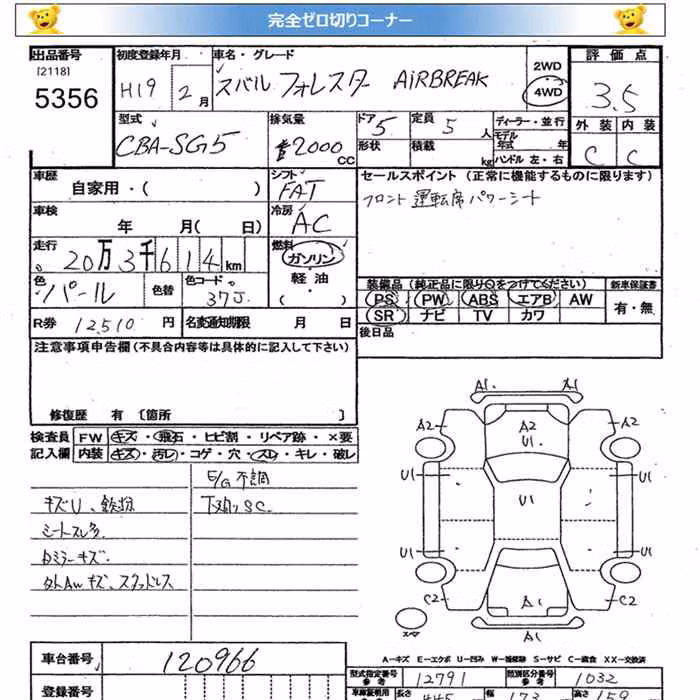 完全ゼロ切りコーナー
出品番号 初度登録年月 車名・グレード 2WD 評価点
[2118]
5356 H19 2月 スバル フォレスター AiRBREAK 4WD 3.5
型式 排気量 ドア 定員 ディーラー・並行 外装 内装
CBA-SG5 2000 CC 5 5 人 モデル年式 年 C C
形状 積載 kg ハンドル 左・右
車歴 シフト セールスポイント (正常に機能するものに限ります)
自家用・( ) FAT フロント 運転席パワーシート
車検 冷房
年 月( 日) AC
走行 燃料
20万3千614km ガソリン
色 色替 色コード 軽油 装備品(純正品に限り○をつけてください) 新車保証書
パール 37J ( ) PS PW ABS エアB AW 有・無
R券 12,510 円 名変通知期限 月 日 SR ナビ TV カワ
後日品
注意事項申告欄(不具合内容等は具体的に記入して下さい)
修復歴 有 〔箇所 〕
検査員 FW キズ・飛石・ヒビ割・リペア跡・×要
記入欄 内装 キズ・汚レ・コゲ・穴・スレ・キレ・破レ
E/G不調
キズU、鉄粉 下廻りSC
シートスレ多
Rミラーキズ
外AWキズ、スタッドレス
A1 A1
A2 A2 U1 A2
U1 U1 U1
U1 U1
C2 A1 C2
A1
スペア
A－キズ E－エクボ U－凹み W－補修跡 S－サビ C－腐食 XX－交換済
車台番号 120966
型式指定番号 参考 12791 類別区分番号 参考 1032
登録番号 車庫証明用 長さ 445 幅 173 高さ 159